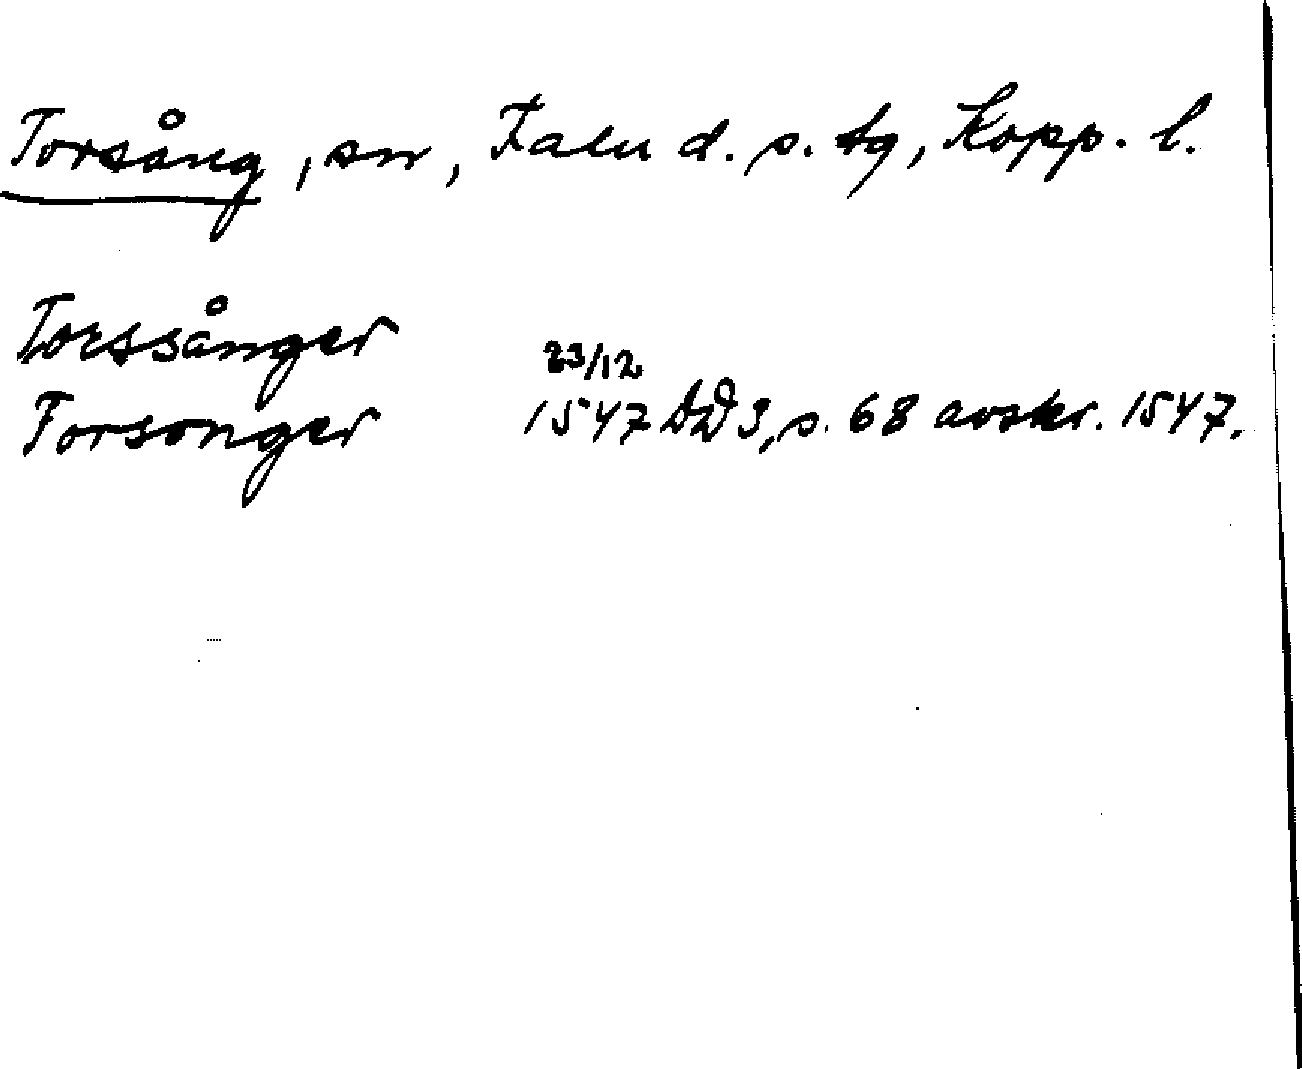 Torsång, sn, Falu d. s. tg, Kopp. l.
Torssånger
23/12
Torsonger 1547 DD 3, s. 68 avskr. 1547.